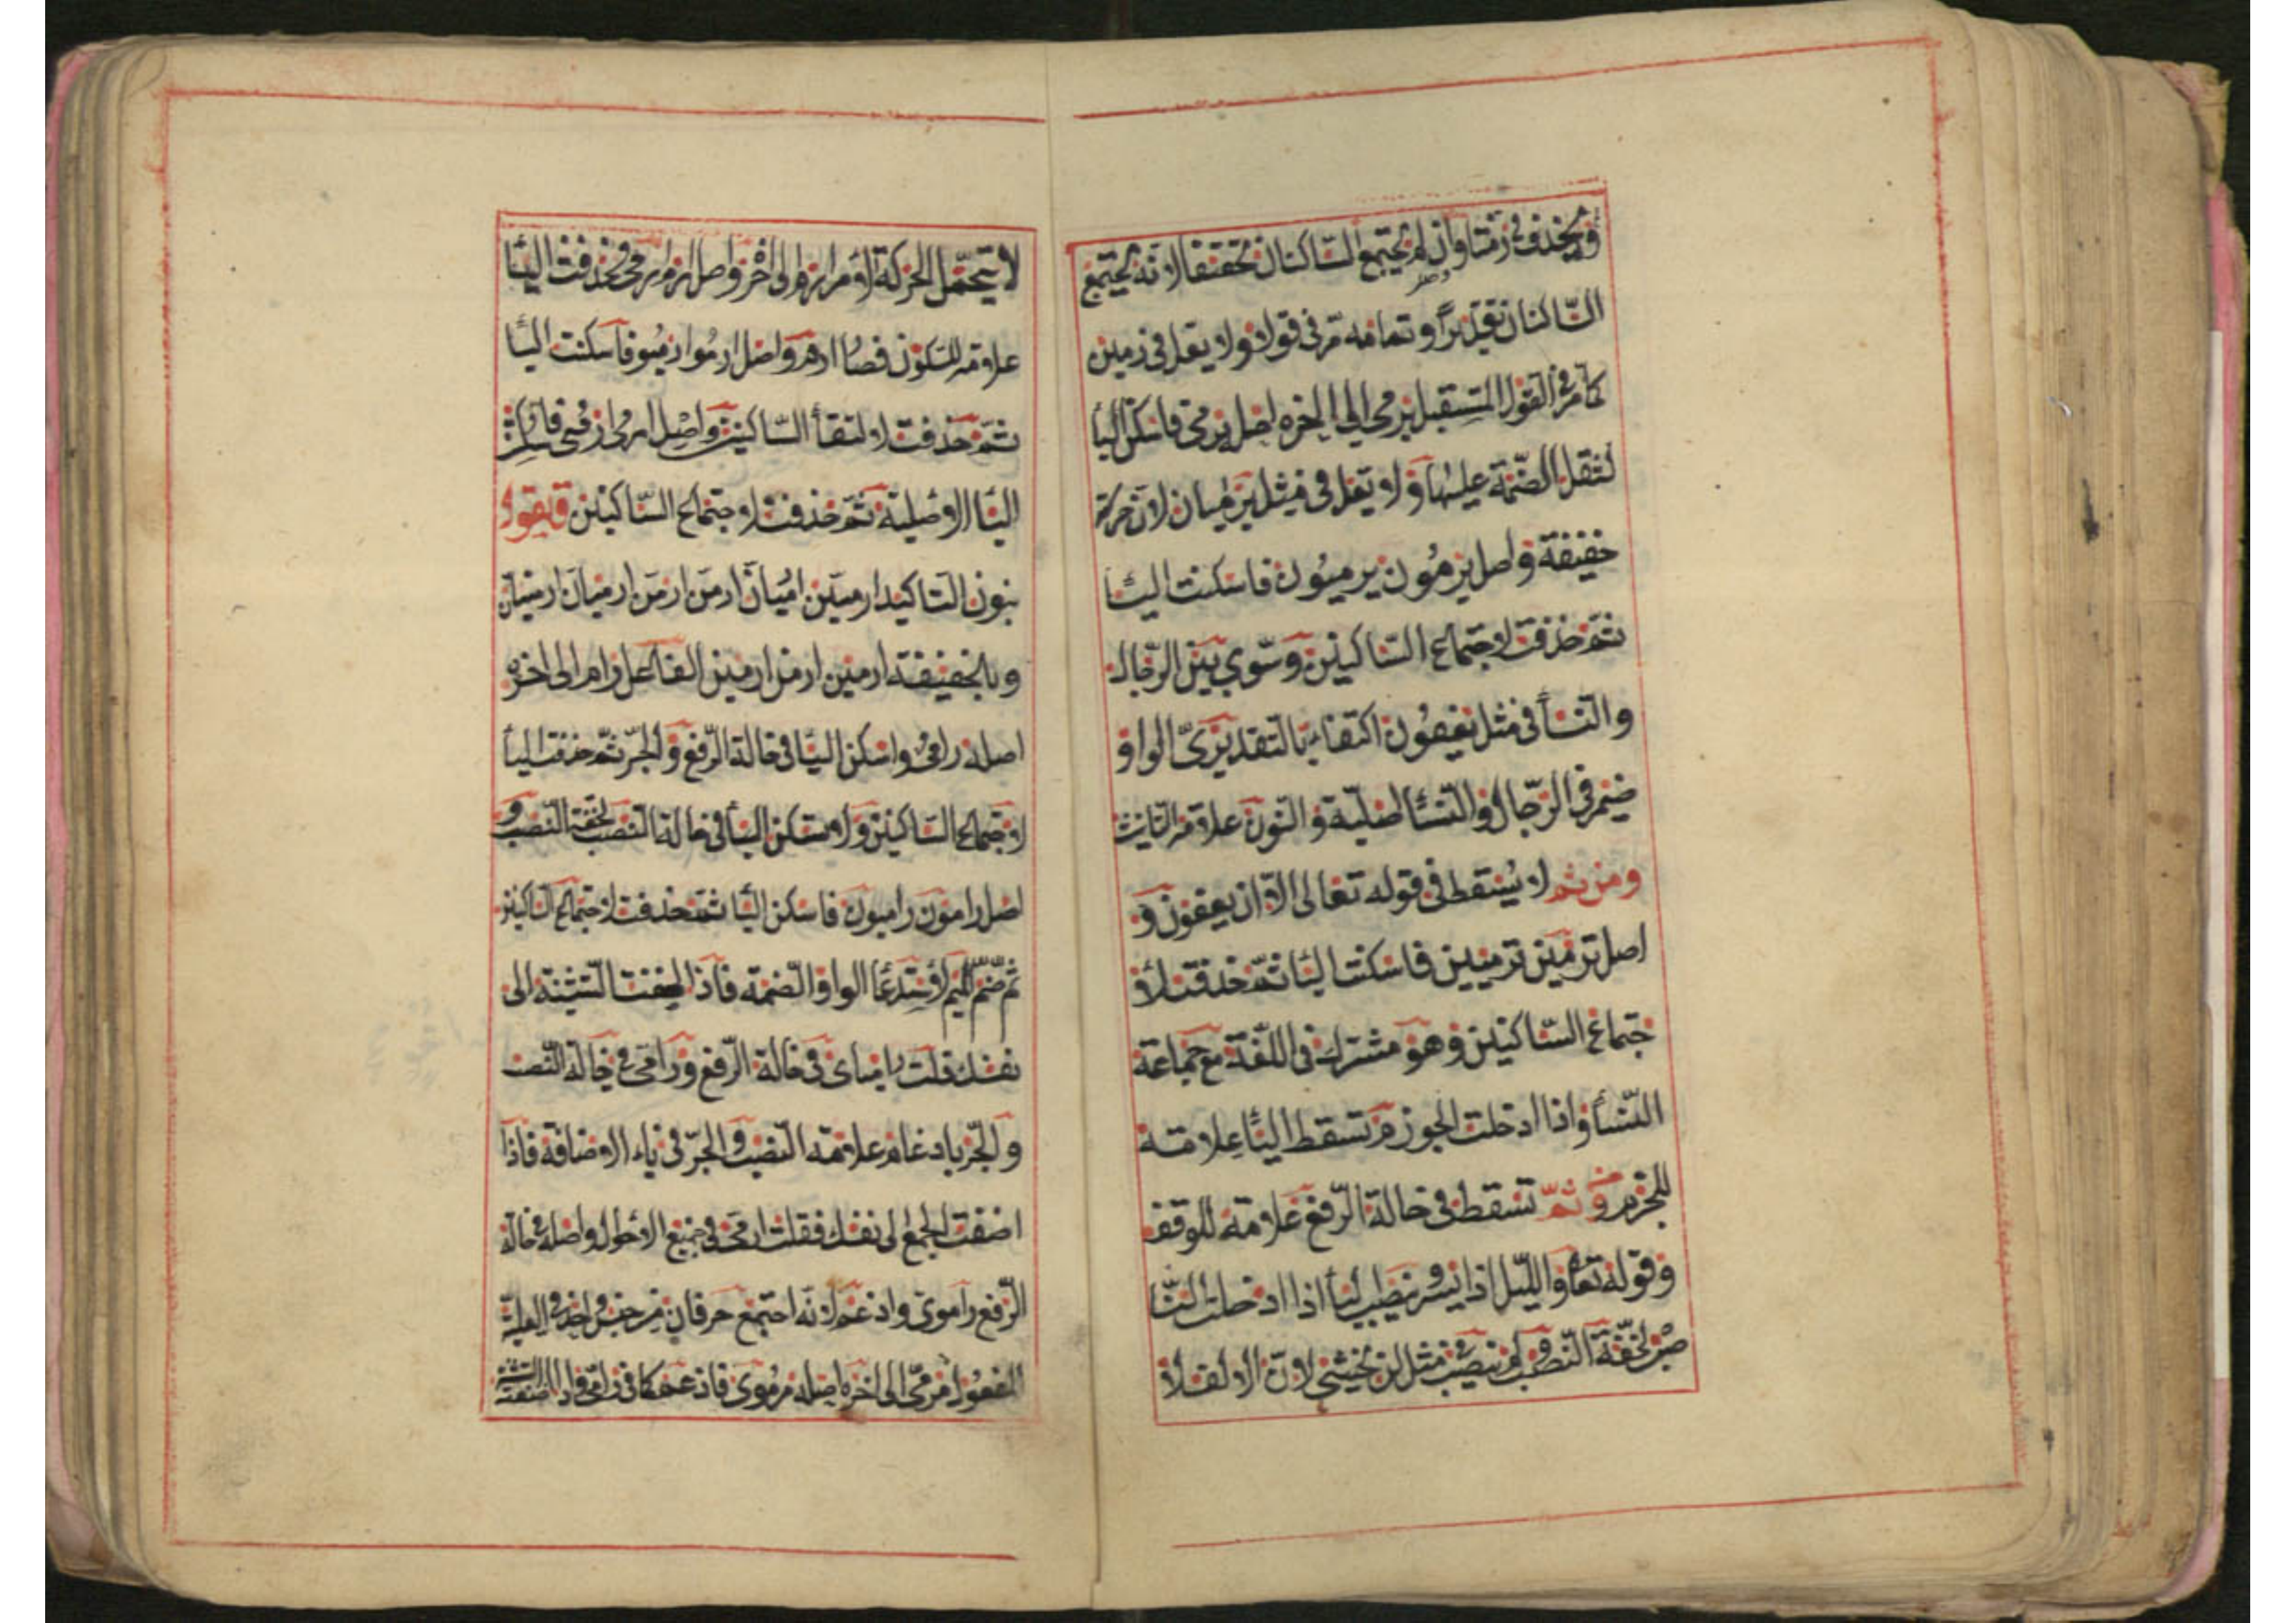 ويحذف في رمتا وان لم يجتمع الساكنان تحقيقا لانه يجتمع
الساكنان تقديرا وتمامه مر في قولا ولا يعل في رمين
كما مر في القول المستقبل يرمى الى اخره اصل يرمى فاسكن اليأ
لثقل الضمة عليها ولا تعل في مثل يرميان لان حركة
خفيفة واصل يرمون يرميون فاسكنت اليأ
ثم حذفت لاجتماع الساكنين وسوي بين الرجال
والنسأ في مثل يعفون اكتفاء بالتقديري الواو
ضمير في الرجال والنسأ اصلية والنون علامة التانيث
ومن ثم لا يسقط في قوله تعالى الا ان يعفون و
اصل ترمين ترميين فاسكنت اليأ ثم حذفت لا
جتماع الساكنين وهو مشترك فى اللفة مع جماعة
النسأ واذا ادخلت الجوزم تسقط اليأ علامة
للجزم و ثم تسقط في حالة الرفع علامة للوقف
وقوله تعا والليل اذا يسر وينصب اليأ اذا ادخلت النا
صب لخفة النصب ولم ينصب في مثل لن يخشى لان الالف لا
لا يتحمل الحركة الامر ارم الى اخر واصل ارم ارمى فحذفت اليأ
علامة للسكون فصا ارم واصل ارموا ارميو فاسكنت اليأ
ثم حذفت لالتقأ الساكنين واصل ارمى ارميى فاسكنت
اليأ الاصلية ثم حذفت لاجتماع الساكنين
بنون التاكيد ارمين ارميان ارمن ارمن ارميان ارمينان
وبالخفيفة ارمين ارمن ارمين الفاعل رام الى اخره
اصله رامى واسكن اليأ فى حالة الرفع والجر ثم حذفت اليأ
لاجتماع الساكنين ولا تسكن اليأ فى حالة النصب لخفة النصب و
اصل رامون راميون فاسكن اليأ ثم حذفت لاجتماع الساكنين
ثم ضم الميم لاستدعا الواو الضمة فاذا اضفت التثنية الى
نفسك قلت رامياى فى حالة الرفع ورامى في حالة النصب
والجر بادغام علامة النصب والجر فى ياء الاضافة فاذا
اضفت الجمع الى نفسك فقلت رامى فى جميع الاحول واصله في حالة
الرفع راموى وادغم لانه اجتمع حرفان من جنس واحد فى العلية
المفعول مرمى الى اخره اصله مرموى فادغم كما فى رامى واذا اضفت التثنية